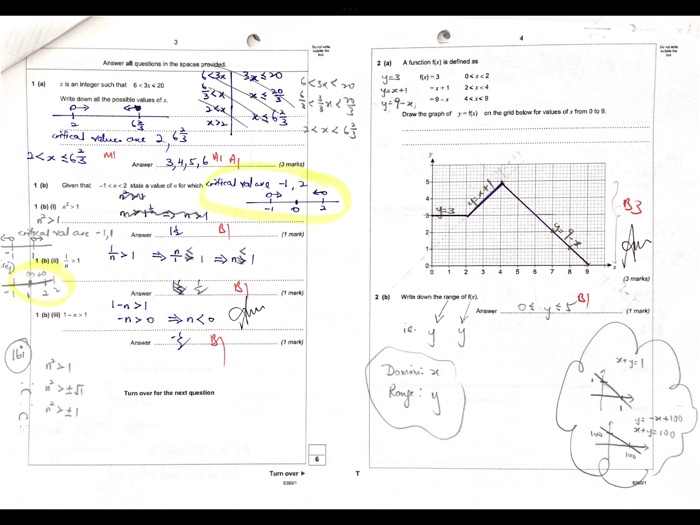 3
Answer all questions in the spaces provided.
1 (a) x is an integer such that 6 < 3x ≤ 20
6 < 3x
3x ≤ 20
6/3 < x
x ≤ 20/3
2 < x
x > 2
x ≤ 6 2/3
6 < 3x < 20
6/3 < 3/3 x < 20/3
2 < x < 6 2/3
Write down all the possible values of x.
2 6 2/3
critical values are 2, 6 2/3
2 < x ≤ 6 2/3 M1
Answer 3, 4, 5, 6 A1 A1 (3 marks)
1 (b) Given that -1 < n < 2 state a value of n for which
critical val are -1, 2
-1 0 2
1 (b) (i) n² > 1
n² > 1
critical val are -1, 1
Answer 1½ B1 (1 mark)
1 (b) (ii) 1/n > 1
1/n > 1 ⇒ n/1 ≤ 1 ⇒ n ≤ 1
Answer ½ B1 (1 mark)
1 (b) (iii) 1 - n > 1
1 - n > 1
-n > 0 ⇒ n < 0
Answer -½ B1 (1 mark)
1bi
n² > 1
n² > ±√1
n² > ±1
Turn over for the next question
6
Turn over
8360/1
4
2 (a) A function f(x) is defined as
y = 3 f(x) = 3 0 ≤ x < 2
y = x + 1 = x + 1 2 ≤ x < 4
y = 9 - x = 9 - x 4 ≤ x ≤ 9
Draw the graph of y = f(x) on the grid below for values of x from 0 to 9.
y
5
4
3
2
1
0
0 1 2 3 4 5 6 7 8 9 x
y = 3
y = x + 1
y = 9 - x
B3
(3 marks)
2 (b) Write down the range of f(x).
Answer 0 ≤ y ≤ 5 B1 (1 mark)
i.e. y y
Domain: x
Range: y
x + y = 1
1
1
y = -x + 100
x + y = 100
100
100
T
8360/1